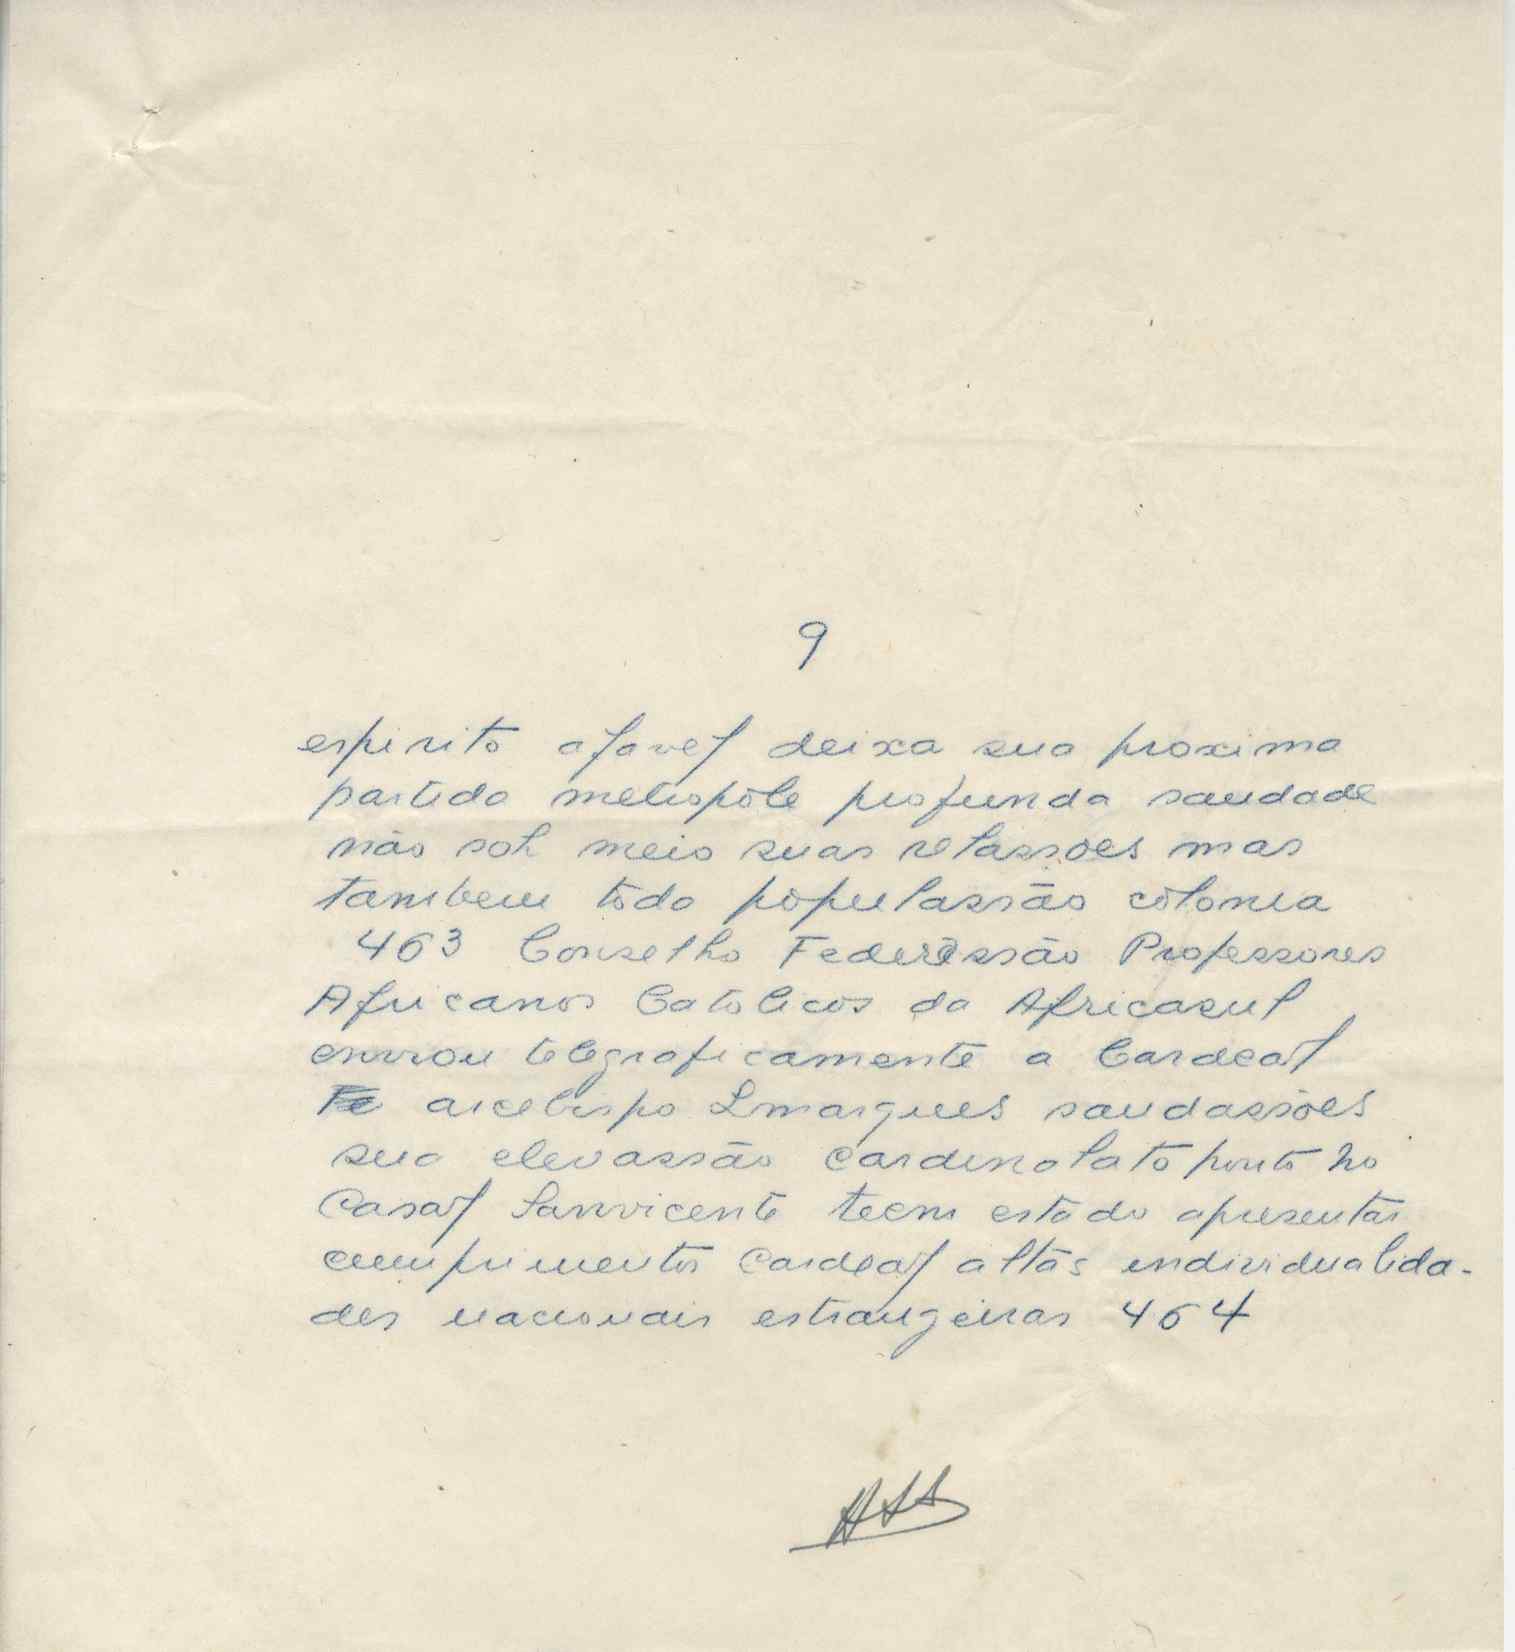 9
espirito afavel deixa sua proxima
partida metropole profunda saudade
não soh meio suas relassões mas
tambem toda populassão colonia
463 Conselho Federassão Professores
Africanos Catolicos da Africasul
enviou telegraficamente a Cardeal
Fe arcebispo Lmarques saudassões
sua elevassão cardinalato ponto no
Casal Sanvicente teem estado apresentar
cumprimentos Cardeal altas individualida-
des nacionais estrangeiras 464